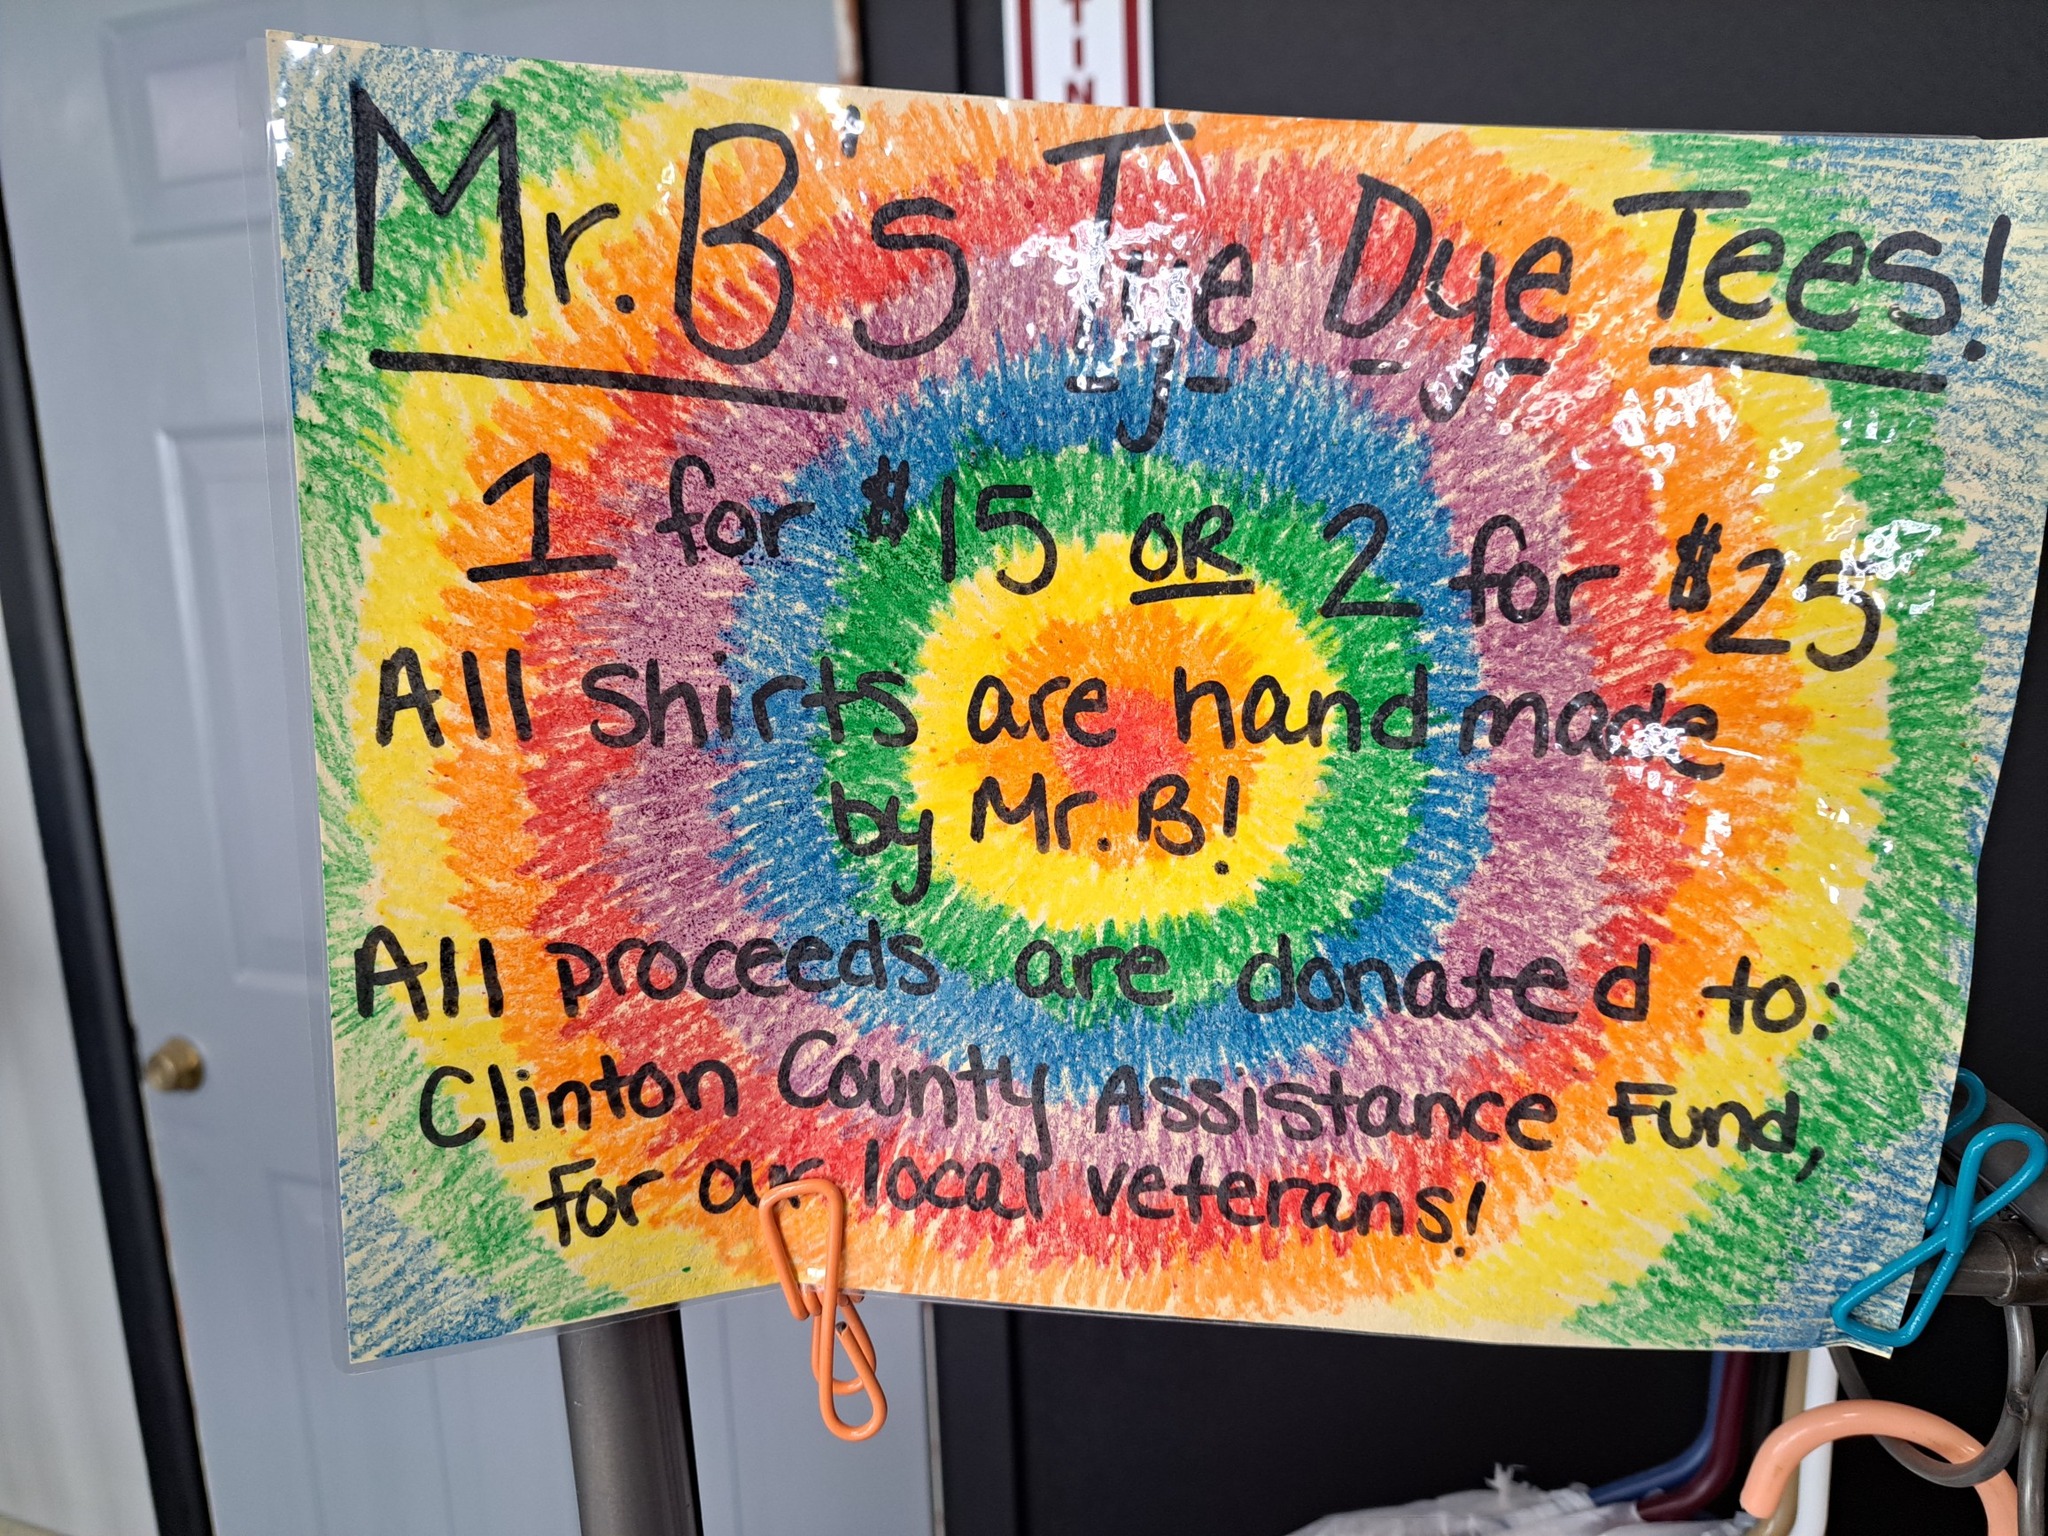 TIN
Mr. B's Tye Dye Tees!
1 for $15 OR 2 for $25
All shirts are handmade
by Mr. B!
All proceeds are donated to:
Clinton County Assistance Fund,
for our local veterans!